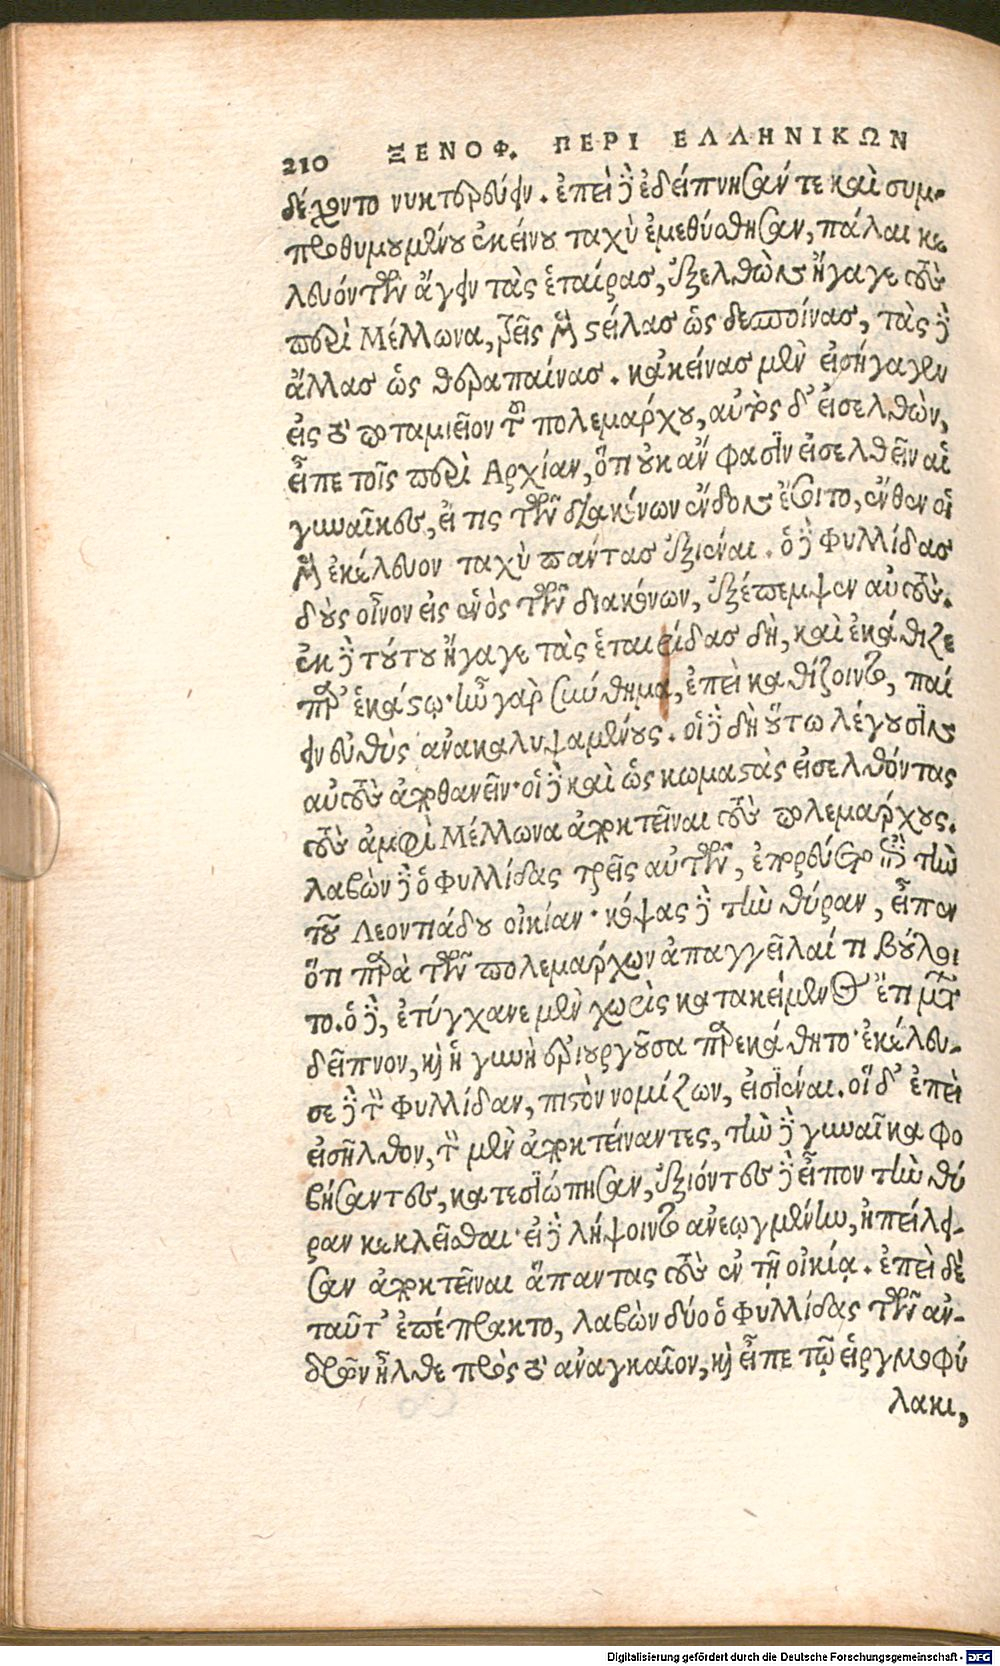 210 ΞΕΝΟΦ. ΠΕΡΙ ΕΛΛΗΝΙΚΩΝ
δέχοντο νυκτερεύειν. ἐπεὶ δὲ ἐδείπνησάν τε καὶ συμ-
προθυμουμένου ἐκείνου ταχὺ ἐμεθύσθησαν, πάλαι κε
λευόντων ἄγειν τὰς ἑταίρας, ἐξελθὼν ἤγαγε τοὺς
περὶ Μέλλωνα, τρεῖς μὲν στείλας ὡς δεσποίνας, τὰς δὲ
ἄλλας ὡς θεραπαίνας. κἀκείνας μὲν εἰσήγαγεν
εἰς τὸ προταμιεῖον τοῦ πολεμάρχου, αὐτὸς δ' εἰσελθὼν,
εἶπε τοῖς περὶ Αρχίαν, ὅτι οὐκ ἄν φασιν εἰσελθεῖν αἱ
γυναῖκες, εἴ τις τῶν διακόνων ἔνδον ἔσοιτο, ἔνθεν οἱ
μὲν ἐκέλευον ταχὺ πάντας ἐξιέναι. ὁ δὲ Φυλλίδας
δοὺς οἶνον εἰς ἑνὸς τῶν διακόνων, ἐξέπεμψεν αὐτούς.
ἐκ δὲ τούτου ἤγαγε τὰς ἑταιρίδας δὴ, καὶ ἐκάθιζε
παρ' ἑκάστῳ· ἦν γὰρ σύνθημα, ἐπεὶ καθίζοιντο, παί
ειν εὐθὺς ἀνακαλυψαμένους. οἱ δὲ δὴ οὕτω λέγουσιν
αὐτοὺς ἀποθανεῖν· οἱ δὲ καὶ ὡς κωμαστὰς εἰσελθόντας
τοὺς ἀμφὶ Μέλλωνα ἀποκτεῖναι τοὺς πολεμάρχους.
λαβὼν δὲ ὁ Φυλλίδας τρεῖς αὐτῶν, ἐπορεύετο ἐπὶ τὴν
τοῦ Λεοντιάδου οἰκίαν· κόψας δὲ τὴν θύραν, εἶπεν
ὅτι παρὰ τῶν πολεμάρχων ἀπαγγεῖλαί τι βούλοι
το. ὁ δὲ, ἐτύγχανε μὲν χωρὶς κατακείμενος ἔτι μετὰ
δεῖπνον, καὶ ἡ γυνὴ ἐριουργοῦσα παρεκάθητο· ἐκέλευ-
σε δὲ τὸν Φυλλίδαν, πιστὸν νομίζων, εἰσιέναι. οἱ δ' ἐπεὶ
εἰσῆλθον, τὸν μὲν ἀποκτείναντες, τὴν δὲ γυναῖκα φο
βήσαντες, κατεσιώπησαν, ἐξιόντες δὲ εἶπον τὴν θύ
ραν κεκλεῖσθαι· εἰ δὲ λήψοιντο ἀνεῳγμένην, ἠπείλη-
σαν ἀποκτεῖναι ἅπαντας τοὺς ἐν τῇ οἰκίᾳ. ἐπεὶ δὲ
ταῦτ' ἐπέπρακτο, λαβὼν δύο ὁ Φυλλίδας τῶν ἀν-
δρῶν ἦλθε πρὸς τὸ ἀναγκαῖον, καὶ εἶπε τῷ εἱργμοφύ
λακι,
Digitalisierung gefördert durch die Deutsche Forschungsgemeinschaft - DFG